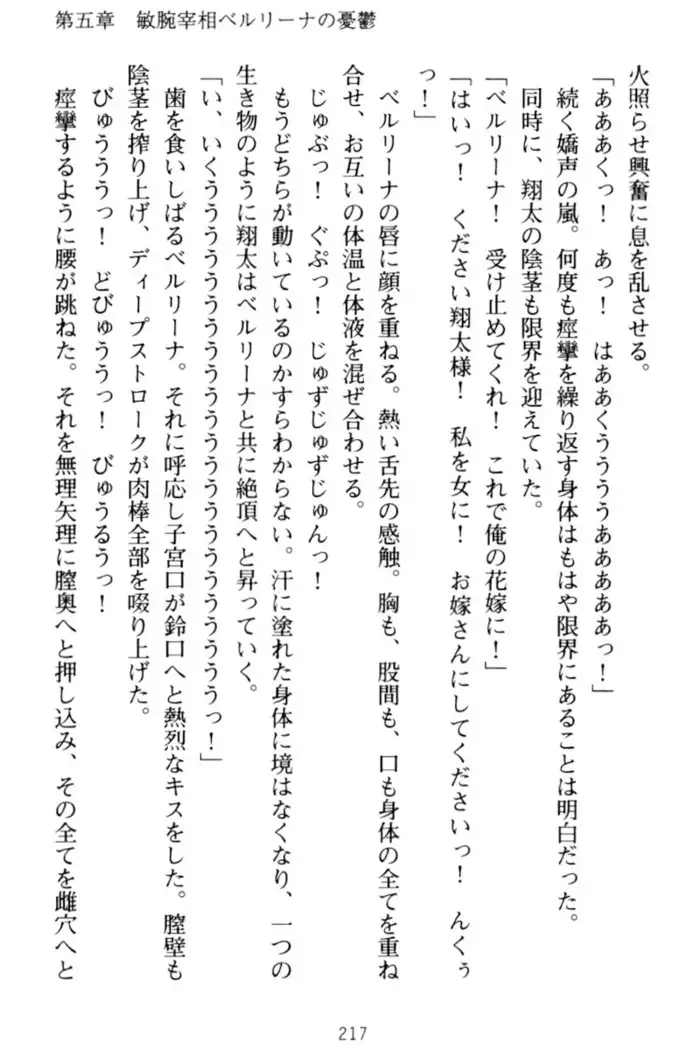 第五章　敏腕宰相ベルリーナの憂鬱
火照らせ興奮に息を乱させる。
「あああくっ！　あっ！　はああくうううううああああああっ！」
続く嬌声の嵐。何度も痙攣を繰り返す身体はもはや限界にあることは明白だった。
同時に、翔太の陰茎も限界を迎えていた。
「ベルリーナ！　受け止めてくれ！　これで俺の花嫁に！」
「はいっ！　ください翔太様！　私を女に！　お嫁さんにしてくださいっ！　んくぅ
っ！」
ベルリーナの唇に顔を重ねる。熱い舌先の感触。胸も、股間も、口も身体の全てを重ね
合せ、お互いの体温と体液を混ぜ合わせる。
じゅぶっ！　ぐぷっ！　じゅずじゅずじゅんっ！
もうどちらが動いているのかすらわからない。汗に塗れた身体に境はなくなり、一つの
生き物のように翔太はベルリーナと共に絶頂へと昇っていく。
「い、いくうううううううううううううううううううううっ！」
歯を食いしばるベルリーナ。それに呼応し子宮口が鈴口へと熱烈なキスをした。膣壁も
陰茎を搾り上げ、ディープストロークが肉棒全部を啜り上げた。
びゅうううっ！　どびゅううっ！　びゅうるうっ！
痙攣するように腰が跳ねた。それを無理矢理に膣奥へと押し込み、その全てを雌穴へと
217